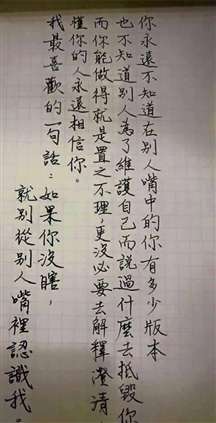 你永遠不知道在別人嘴中的你有多少版本
也不知道別人為了維護自己而說過什麼去抵毀你
而你能做得就是置之不理,更沒必要去解釋澄清,
懂你的人永遠相信你。
我最喜歡的一句話:如果你沒瞎,
就別從別人嘴裡認識我。